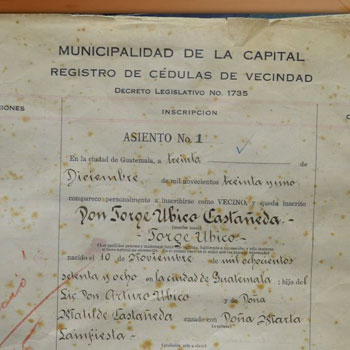 MUNICIPALIDAD DE LA CAPITAL
REGISTRO DE CÉDULAS DE VECINDAD
DECRETO LEGISLATIVO NO. 1735
IONES
INSCRIPCION
C
ASIENTO No 1
En la ciudad de Guatemala, a treinta de
Diciembre de mil novecientos treinta y uno
comparece personalmente a inscribirse como VECINO y queda inscrito
Don Jorge Ubico Castañeda.-
Jorge Ubico.-
nacido el 10 de Noviembre de mil ochocientos
setenta y ocho en la ciudad de Guatemala: hijo del
Lic. Don Arturo Ubico y de Doña
Matilde Castañeda casado con Doña Marta
Lainfiesta.-